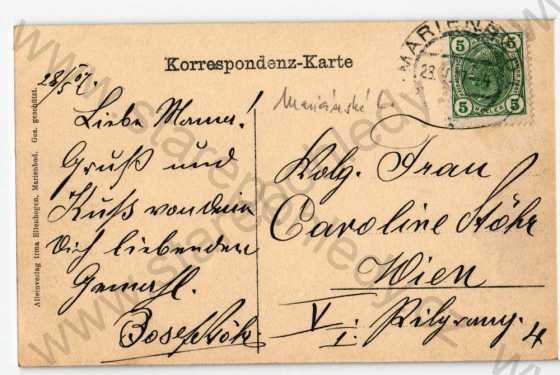 Korrespondenz-Karte
28/5 07.
Liebe Mama!
Gruß und
Kuß von dein
Dich liebenden
Gemahl.
Josef Stöhr
Mariánské L.
MARIENB
5 5
5 5
Wolg. Frau
Caroline Stöhr
Wien
V.
1. Pilgramg. 4
Alleinverlag Irma Ellenbogen, Marienbad. Ges. geschützt.